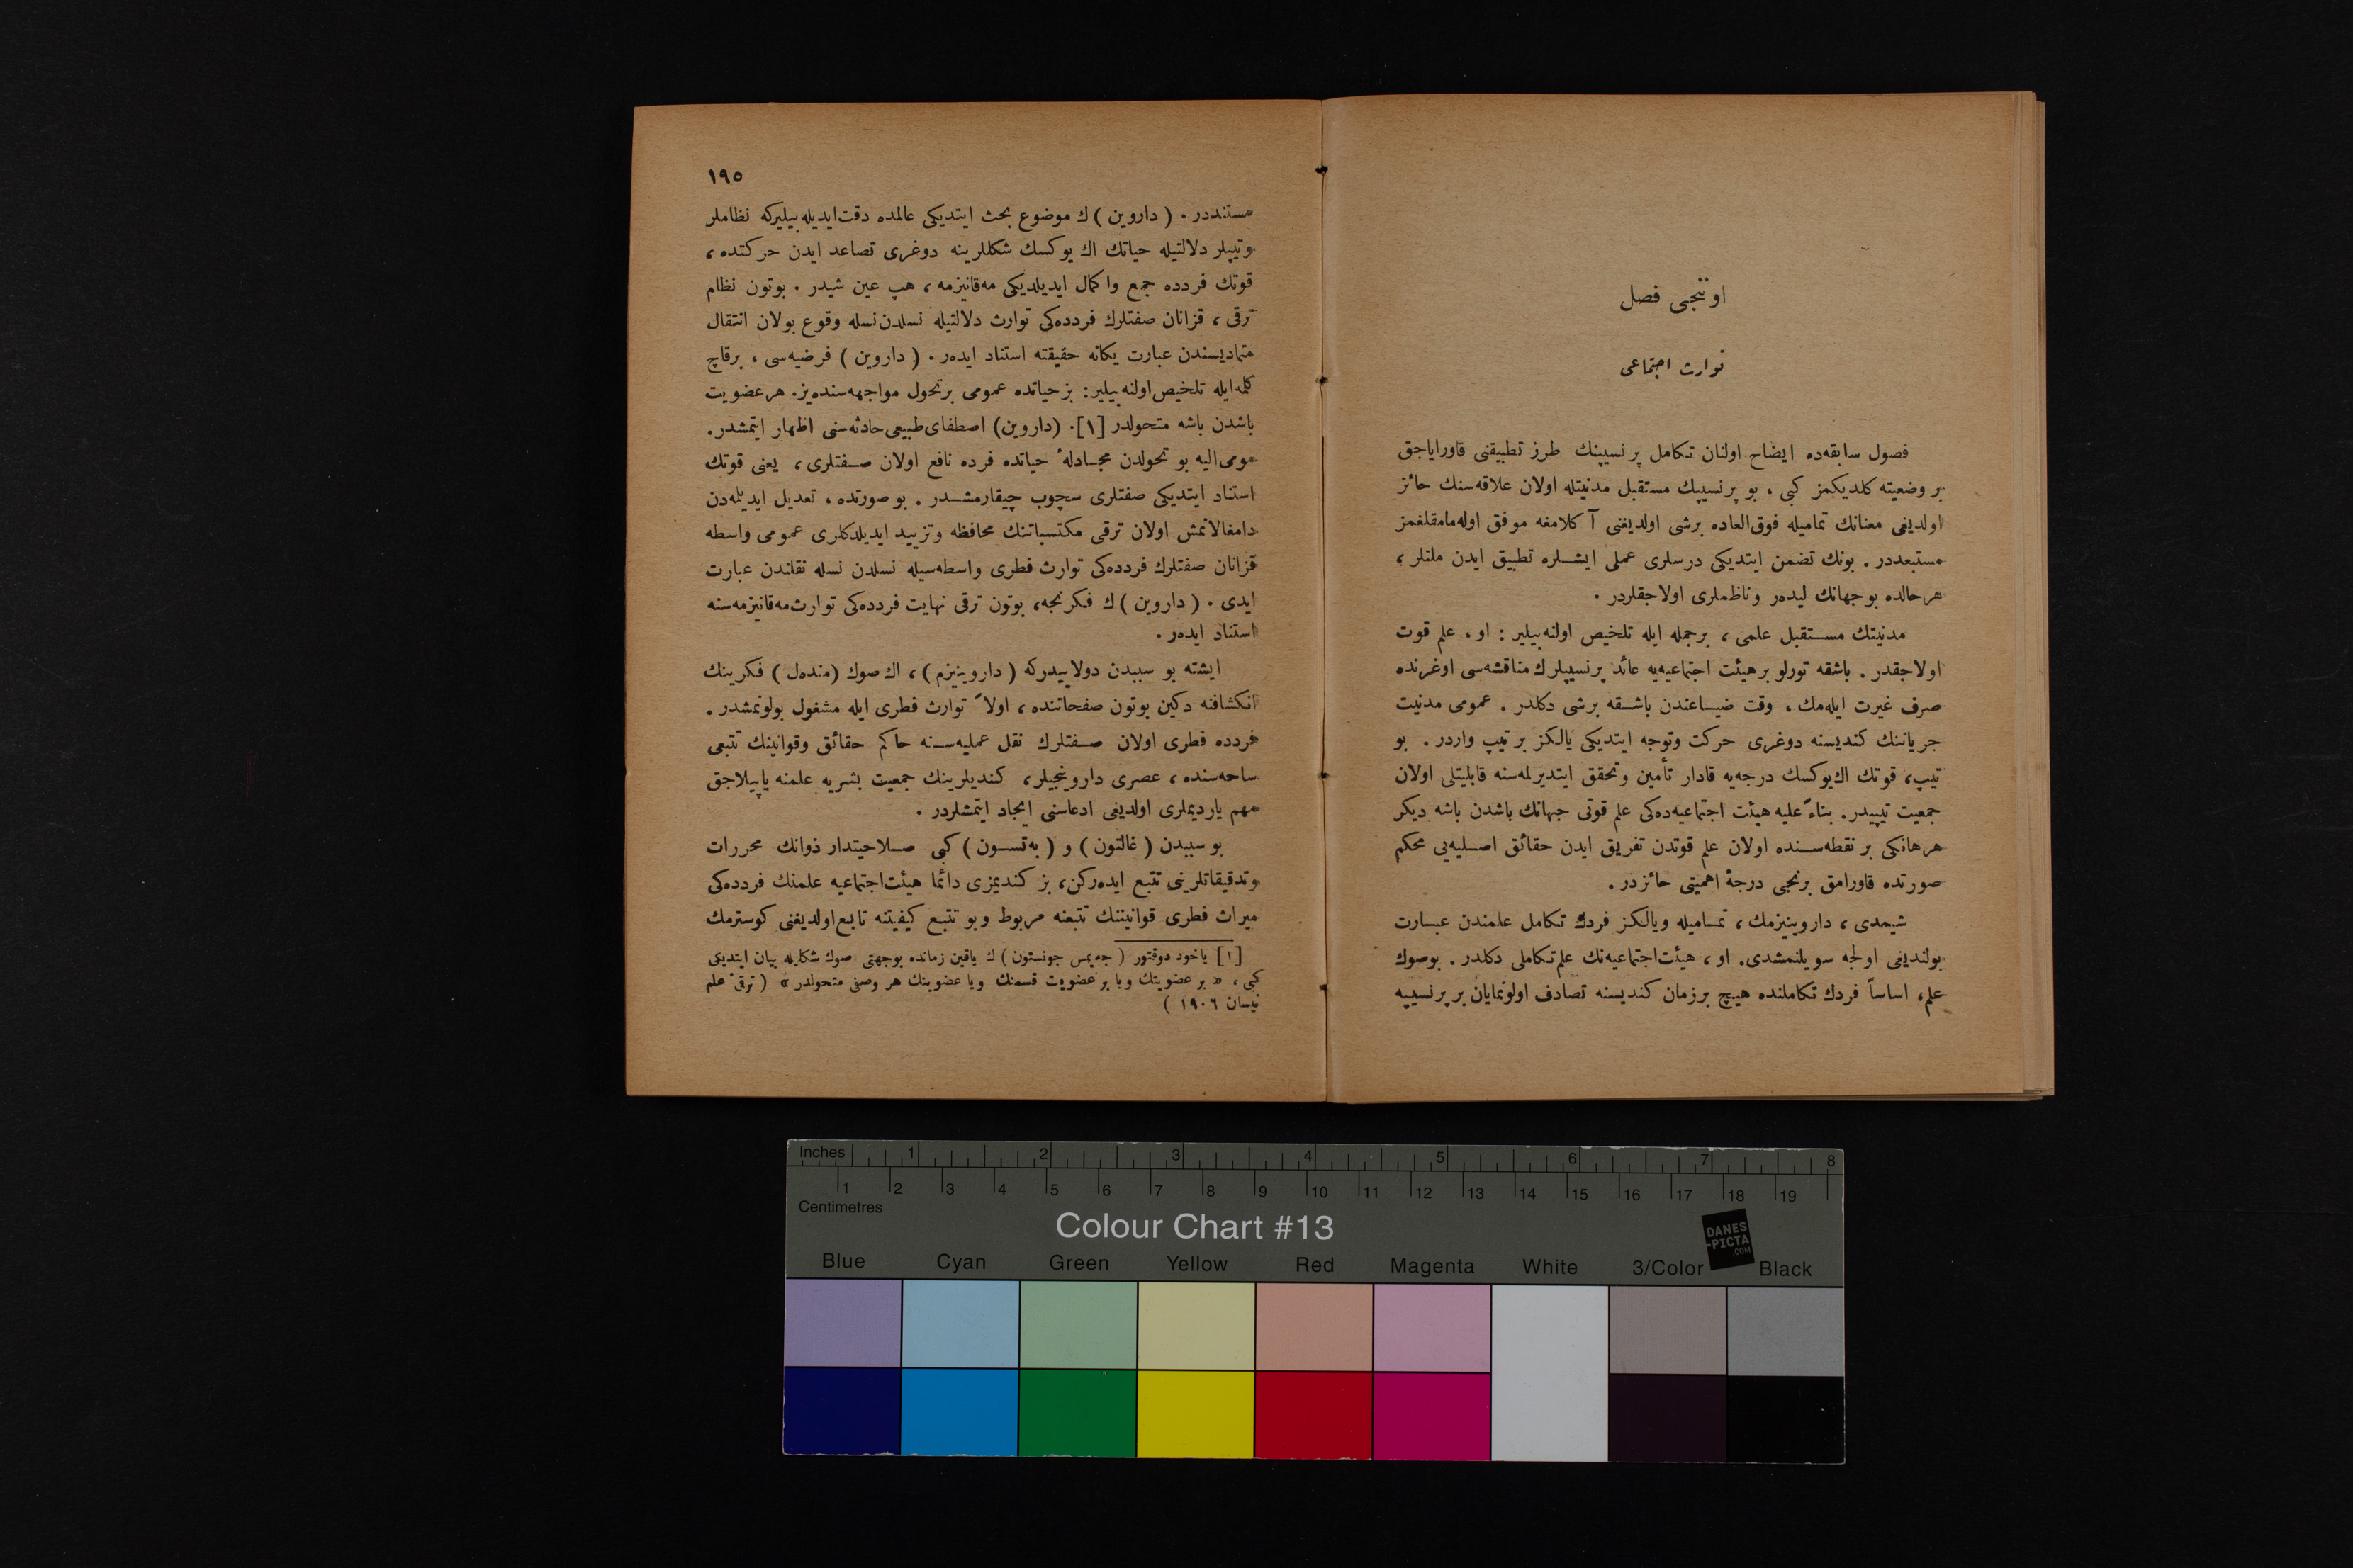 اوننجی فصل
توارث اجتماعی
فصول سابقه‌ده ایضاح اولنان تکامل پرنسیپنك طرز تطبیقنی قاورایاجق
بر وضعیته کلدیکمز کبی ، بو پرنسیپك مستقبل مدنیتله اولان علاقه‌سنك حائز
اولدیغی معنانك تمامیله فوق‌العاده برشی اولدیغنی آکلامغه موفق اوله‌مامقلغمز
مستبعددر . بونك تضمن ایتدیکی درسلری عملی ایشلره تطبیق ایدن ملتلر ،
هرحالده بوجهانك لیده‌ر و ناظملری اولاجقلردر .
مدنیتك مستقبل علمی ، برجمله ایله تلخیص اولنه‌بیلیر : او ، علم قوت
اولاجقدر . باشقه تورلو بر هیئت اجتماعیه‌یه عائد پرنسیپلرك مناقشه‌سی اوغرنده
صرف غیرت ایله‌مك ، وقت ضیاعندن باشقه برشی دکلدر . عمومی مدنیت
جریاننك کندیسنه دوغری حرکت وتوجه ایتدیکی یالکز بر تیپ واردر . بو
تیپ، قوتك اك‌یوکسك درجه‌یه قادار تأمین و تحقق ایتدیرلمه‌سنه قابلیتلی اولان
جمعیت تیپیدر . بناءً علیه هیئت اجتماعیه‌ده‌کی علم قوتی جهانك باشدن باشه دیکر
هرهانکی بر نقطه‌سنده اولان علم قوتدن تفریق ایدن حقائق اصلیه‌یی محکم
صورتده قاورامق برنجی درجهٔ اهمیتی حائزدر .
شیمدی ، داروینیزمك ، تمامیله ویالکز فردك تکامل علمندن عبارت
بولندیغی اولجه سویلنمشدی. او ، هیئت‌اجتماعیه‌نك علم تکاملی دکلدر . بوصوك
علم، اساساً فردك تکاملنده هیچ برزمان کندیسنه تصادف اولونمایان بر پرنسیپه
١٩٥
مستنددر . ( داروین )ك موضوع بحث ایتدیکی عالمده دقت‌ایدیله‌بیلیرکه نظاملر
وتیپلر دلالتیله حیاتك اك یوکسك شکللرینه دوغری تصاعد ایدن حرکتده ،
قوتك فردده جمع واکمال ایدیلدیکی مه‌قانیزمه ، هپ عین شیدر . بوتون نظام
ترقی ، قزانان صفتلرك فردده‌کی توارث دلالتیله نسلدن‌نسله وقوع بولان انتقال
متمادیسندن عبارت یکانه حقیقته استناد ایده‌ر . ( داروین ) فرضیه‌سی ، برقاچ
کلمه‌ایله تلخیص‌اولنه‌بیلیر: بز حیاتده عمومی برتحول مواجهه‌سنده‌یز. هرعضویت
باشدن باشه متحولدر [١]. (داروین) اصطفای‌طبیعی‌حادثه‌سنی اظهار ایتمشدر.
مومی‌الیه بو تحولدن مجادلهٔ حیاتده فرده نافع اولان صفتلری ، یعنی قوتك
استناد ایتدیکی صفتلری سچوب چیقارمشدر . بو صورتده ، تعدیل ایدیله‌دن
دامغالانمش اولان ترقی مکتسباتنك محافظه وتزیید ایدیلدکلری عمومی واسطه
قزانان صفتلرك فردده‌کی توارث فطری واسطه‌سیله نسلدن نسله نقلندن عبارت
ایدی . ( داروین )ك فکرنجه، بوتون ترقی نهایت فردده‌کی توارث‌مه‌قانیزمه‌سنه
استناد ایده‌ر .
ایشته بو سببدن دولاییدرکه ( داروینیزم ) ، اك صوك (منده‌ل ) فکرینك
انکشافنه دکین بوتون صفحاتنده ، اولاً توارث فطری ایله مشغول بولونمشدر .
فردده فطری اولان صفتلرك نقل عملیه‌سنه حاکم حقائق وقوانینك تتبعی
ساحه‌سنده ، عصری داروینجیلر ، کندیلرینك جمعیت بشریه علمنه یاپیلاجق
مهم یاردیملری اولدیغی ادعاسنی ایجاد ایتمشلردر .
بو سببدن ( غالتون ) و ( به‌تسون ) کبی صلاحیتدار ذواتك محررات
وتدقیقاتلرینی تتبع ایده‌رکن، بز کندیمزی دائما هیئت‌اجتماعیه علمنك فردده‌کی
میراث فطری قوانیننك تتبعنه مربوط وبو تتبع کیفیتنه تابع‌اولدیغنی کوسترمك
[١] یاخود دوقتور ( جه‌یمس جونستون )ك یاقین زمانده بوجهتی صوك شکلیله بیان ایتدیکی
کبی ، « بر عضویتك ویا بر عضویت قسمنك ویا عضویتك هر وصفی متحولدر » ( ترقئ علم
نیسان ١٩٠٦ )
Inches 1 2 3 4 5 6 7 8
1 2 3 4 5 6 7 8 9 10 11 12 13 14 15 16 17 18 19
Centimetres
Colour Chart #13
DANES
-PICTA
.COM
Blue Cyan Green Yellow Red Magenta White 3/Color Black